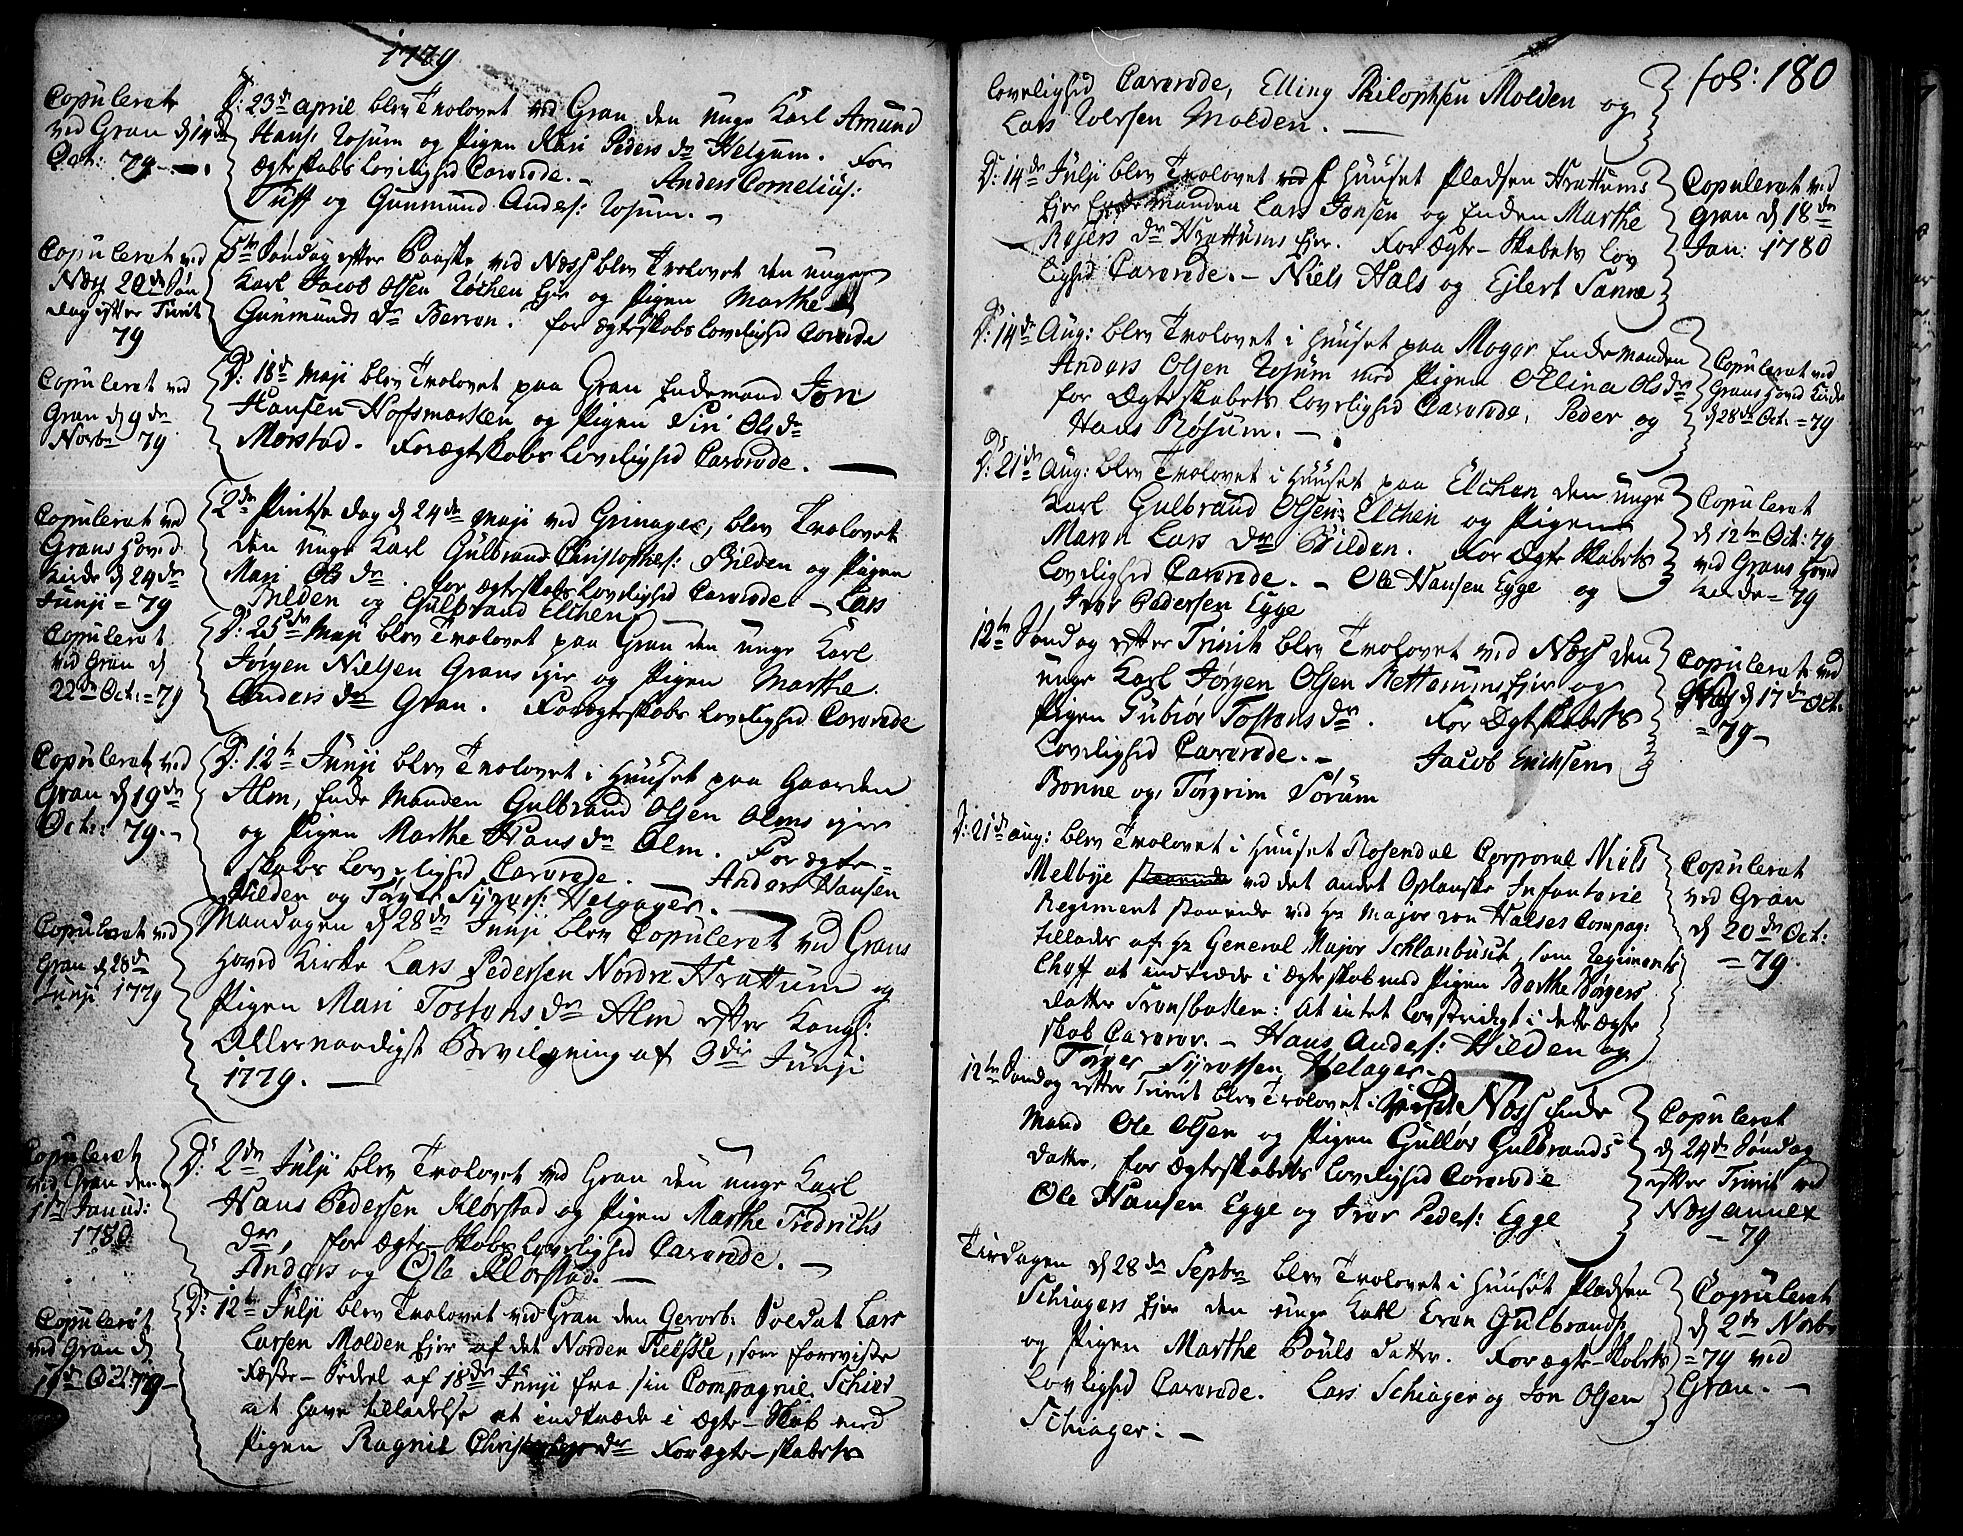 1779
Copulerat
ved Gran d 14de
Oct: 79
D: 23de April blev Trolovet ved Gran den unge Karl Amund
Hans: Rosum og Pigen Kari Peders dr Helgum. For
Ægteskabs Lovlighed Caverede. Anders Cornelius:
Tuff og Gunmund Anders: Rosum.
Copulerat ved
Næs 20de Søn
dag efter Trinit
79
5te Søndag efter Paaske ved Næss blev Trolovet den unge
Karl Jacob Olsen Røchen Ejer og Pigen Marthe
Gunmunds dr Berven. for ægteskabs Lovlighed Caverede
Copulerat ved
Gran d 9de
Novbr 79
D: 18de Maji blev Trolovet paa Gran Enkemand Jon
Hansen Hofsmarken og Pigen Siri Ols dr
Morstad. For ægteskabs Lovlighed Caverede.
Copulerat ved
Grans Hovid
Kirke d 24de
Junji = 79
2den Pintse Dag d 24de Maji ved Grinager, blev Trolovet
den unge Karl Gulbrand Christophes: Bilden og Pigen
Mari Ols dr. for ægteskabs Lovlighed Caverede. Lars
Bilden og Gulbrand Elchen
Copulerat
ved Gran d
22de Oct: = 79
D: 25de Maji blev Trolovet paa Gran den unge Karl
Jørgen Nielsen Grans Ejer og Pigen Marthe
Anders dr Gran. For ægteskabs Lovlighed Caverede
Copulerat ved
Gran d 19de
Oct: 79.
D: 12te Junji blev Trolovet i Huuset paa Gaarden
Alm, Enke Manden Gulbrand Olsen Alms Ejer
og Pigen Marthe Hans dr Alm. For ægte-
skabs Lovlighed Caverede. Anders Hansen
Hilden og Torger Syvers: Helgager.
Copulerat ved
Gran d 28de
Junji 1779
Mandagen d 28de Junji blev Copulerat ved Grans
Hovid Kirke Lars Pedersen Nordre Hrattum og
Pigen Mari Tostens dr Alm efter Kongl:
Allernaadigst Bevilgning af 9de Junji
1779.
Copulerat
ved Gran den
11te Janud:
1780
D: 2den Julji blev Trolovet ved Gran den unge Karl
Hans Pedersen Klørstad og Pigen Marthe Fredrichs
dr, for ægte-Skabs Lovlighed Caverede.
Anders og Ole Klørstad.
Copulerat
ved Gran d
Oct 79
D: 12te Julji blev Trolovet ved Gran den Gevorb: Soldat Lars
Larsen Molden Ejer af det Norden Fieldske, som foreviste
Reise-Sedel af 18de Junji fra sin Compagnie Schier
at have tilladelse at indtræde i Ægte-Skab med
Pigen Ragnil dr For ægte-skabets
fol: 180
Lovlighed Caverede, Elling Philophsen Molden og
Lars Iversen Molden.
D: 14de Julji blev Trolovet i Huuset Pladsen Hrattums
Ejer Enkemanden Lars Jonsen og Enken Marthe
Rejers dr Hrattums Ejer. For Ægte-Skabets Lov
lighed Caverede. Niels Hals og Ejlert Sanne
Copulerat ved
Gran d 18de
Jan: 1780
D: 14de Aug: blev Trolovet i Huuset paa Moger Enkemanden
Anders Olsen Rosum med Pigen Ollina Ols dr
for Ægteskabets Lovlighed Caverede, Peder og
Hans Rosum.
Copulerat ved
Grans Hovid Kirke
d 28de Oct: = 79
D: 21de Aug: blev Trolovet i Huuset paa Elchen den unge
Karl Gulbrand Olsen Elchen og Pigen
Maren Lars dr Bilden. For Ægte Skabets
Lovlighed Caverede. Ole Hansen Egge og
Iver Pedersen Egge
Copulerat
d 12te Oct: 79
ved Grans Hovid
Kirke = 79
12te Søndag efter Trinit: blev Trolovet ved Næs den
unge Karl Jørgen Olsen Retterums Ejer og
Pigen Gubiør Tostens dr. For Ægteskabets
Lovlighed Caverede. Jacob Erichsen
Bonne og Torgrim Sørum
Copulerat ved
Næs d 17de Oct:
= 79
D: 21de Aug: blev Trolovet i Huuset Rosendal Corporal Niels
Melbye staaende ved det andet Oplanske Infanterie
Regiment staaende ved Hr Major von Halses Compag:
tilladt af Hr General Major Schlanbusch, som Regiments
Cheff at indtræde i Ægteskab med Pigen Berthe Børgers
datter Fronsbakken: At intet Lovstridigt i dette Ægte
skab Caverer. Hans Anders: Hilden og
Torger Syversen Helager.
Copulerat
ved Gran
d 20de Oct:
= 79.
12te Søndag efter Trinit blev Trolovet i Huset Næss Enke
Mand Ole Olsen og Pigen Gulløv Gulbrands
datter, for Ægteskabets Lovlighed Caverede
Ole Hansen Egge og Iver Peders: Egge
Copulerat
d 24de Søndag
efter Trinit ved
Næs annex
79
Tirsdagen d 28de Septbr blev Trolovet i Huuset Pladsen
Schiagers Ejer den unge Karl Even Gulbrands
og Pigen Marthe Pouls datter. For ægte-Skabets
Lovlighed Caverede. Lars Schiager og Jon Olsen
Schiager:
Copulerat
d 2de Novbr
= 79 ved
Gran.